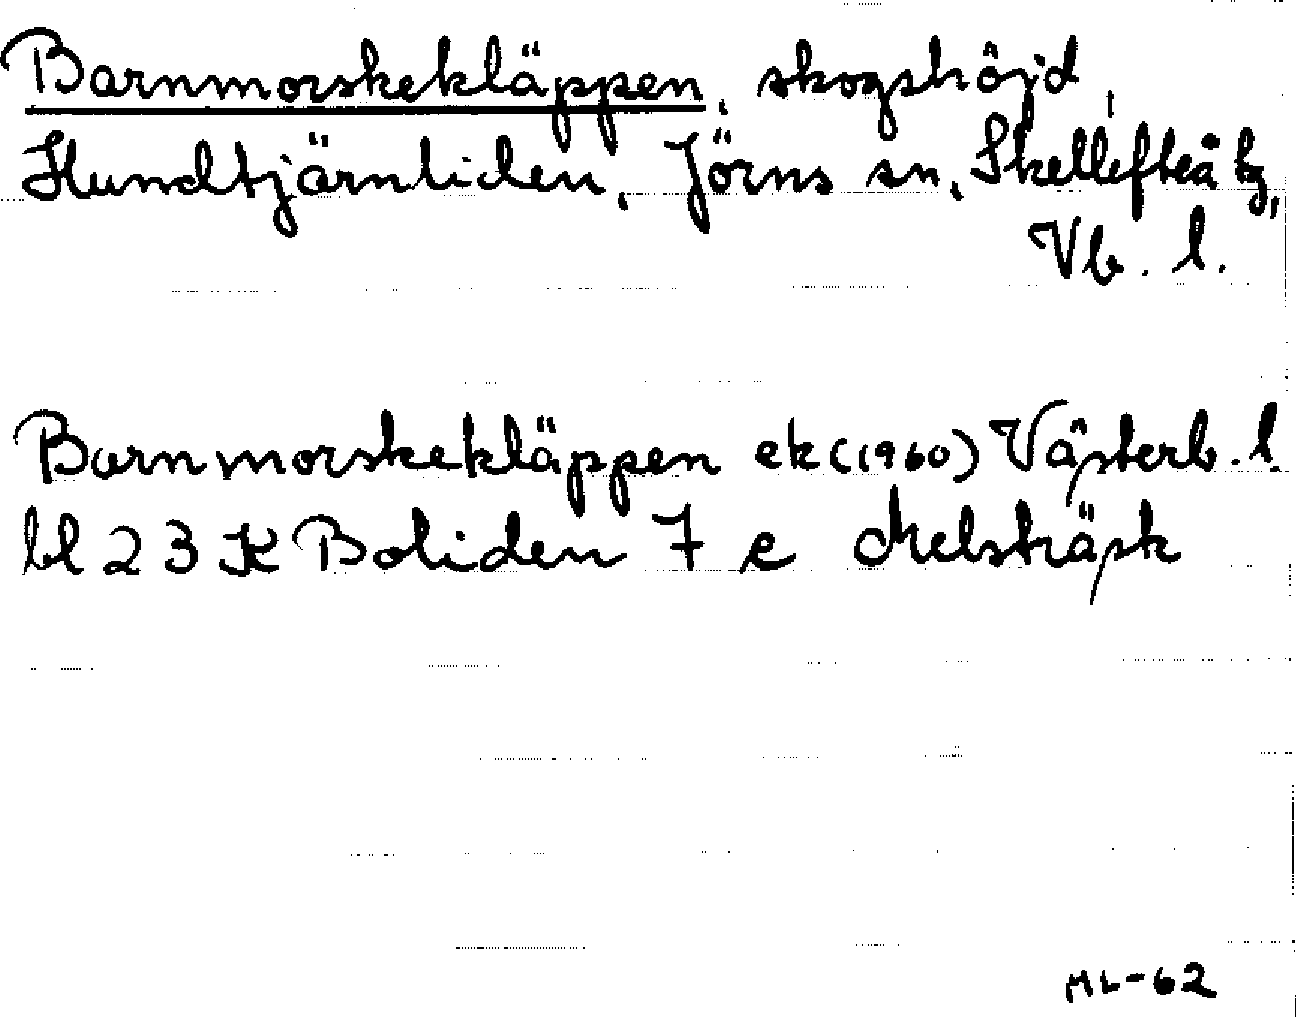 Barnmorskekläppen, skogshöjd,
Hundtjärnliden, Jörns sn, Skellefteå tg,
Vb. l.
Barnmorskekläppen ek (1960) Västerb. l.
bl 23 K Boliden 7 e Melsträsk
ML-62